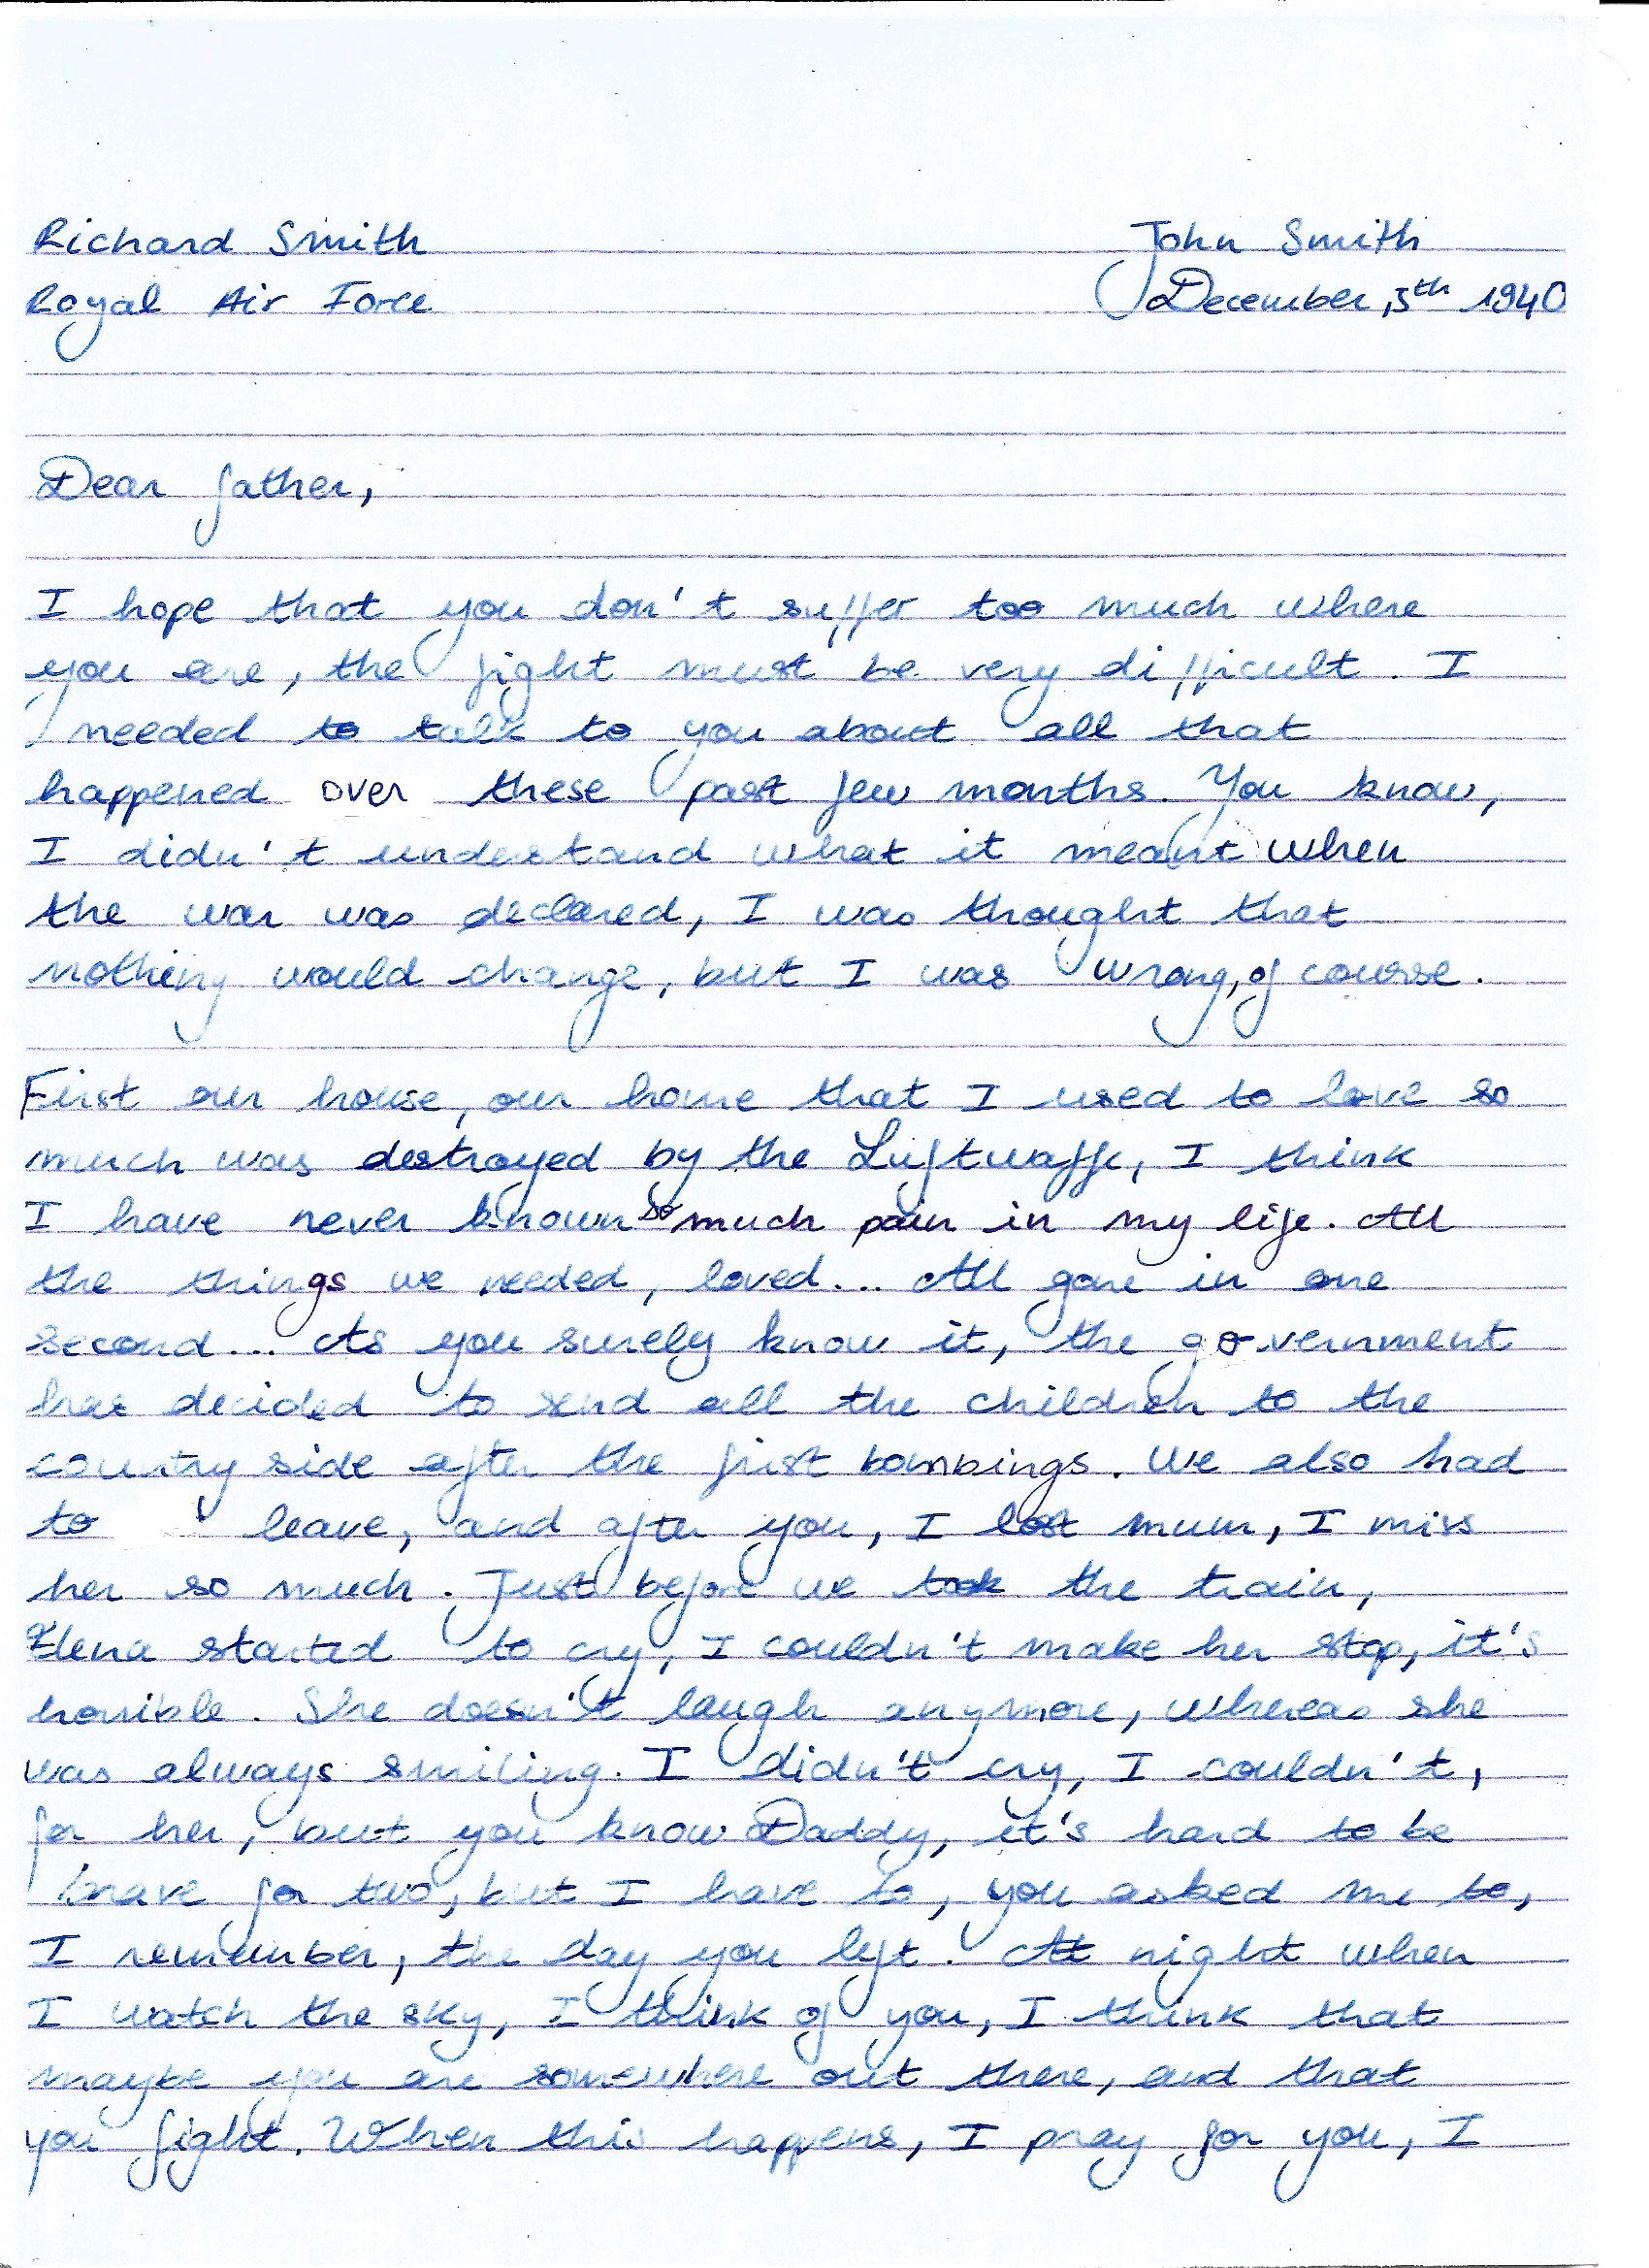 Richard Smith John Smith
Royal Air Force December, 5th 1940
Dear father,
I hope that you don't suffer too much where
you are, the fight must be very difficult. I
needed to talk to you about all that
happened over these past few months. You know,
I didn't understand what it meant when
the war was declared, I was thought that
nothing would change, but I was wrong, of course.
First our house, our home that I used to love so
much was destroyed by the Luftwaffe, I think
I have never known so much pain in my life. All
the things we needed, loved... All gone in one
second... As you surely know it, the government
has decided to send all the children to the
country side after the first bombings. We also had
to leave, and after you, I lost mum, I miss
her so much. Just before we took the train,
Elena started to cry, I couldn't make her stop, it's
horrible. She doesn't laugh anymore, whereas she
was always smiling. I didn't cry, I couldn't,
for her, but you know Daddy, it's hard to be
brave for two, but I have to, you asked me to,
I remember, the day you left. At night when
I watch the sky, I think of you, I think that
maybe you are somewhere out there, and that
you fight. When this happens, I pray for you, I